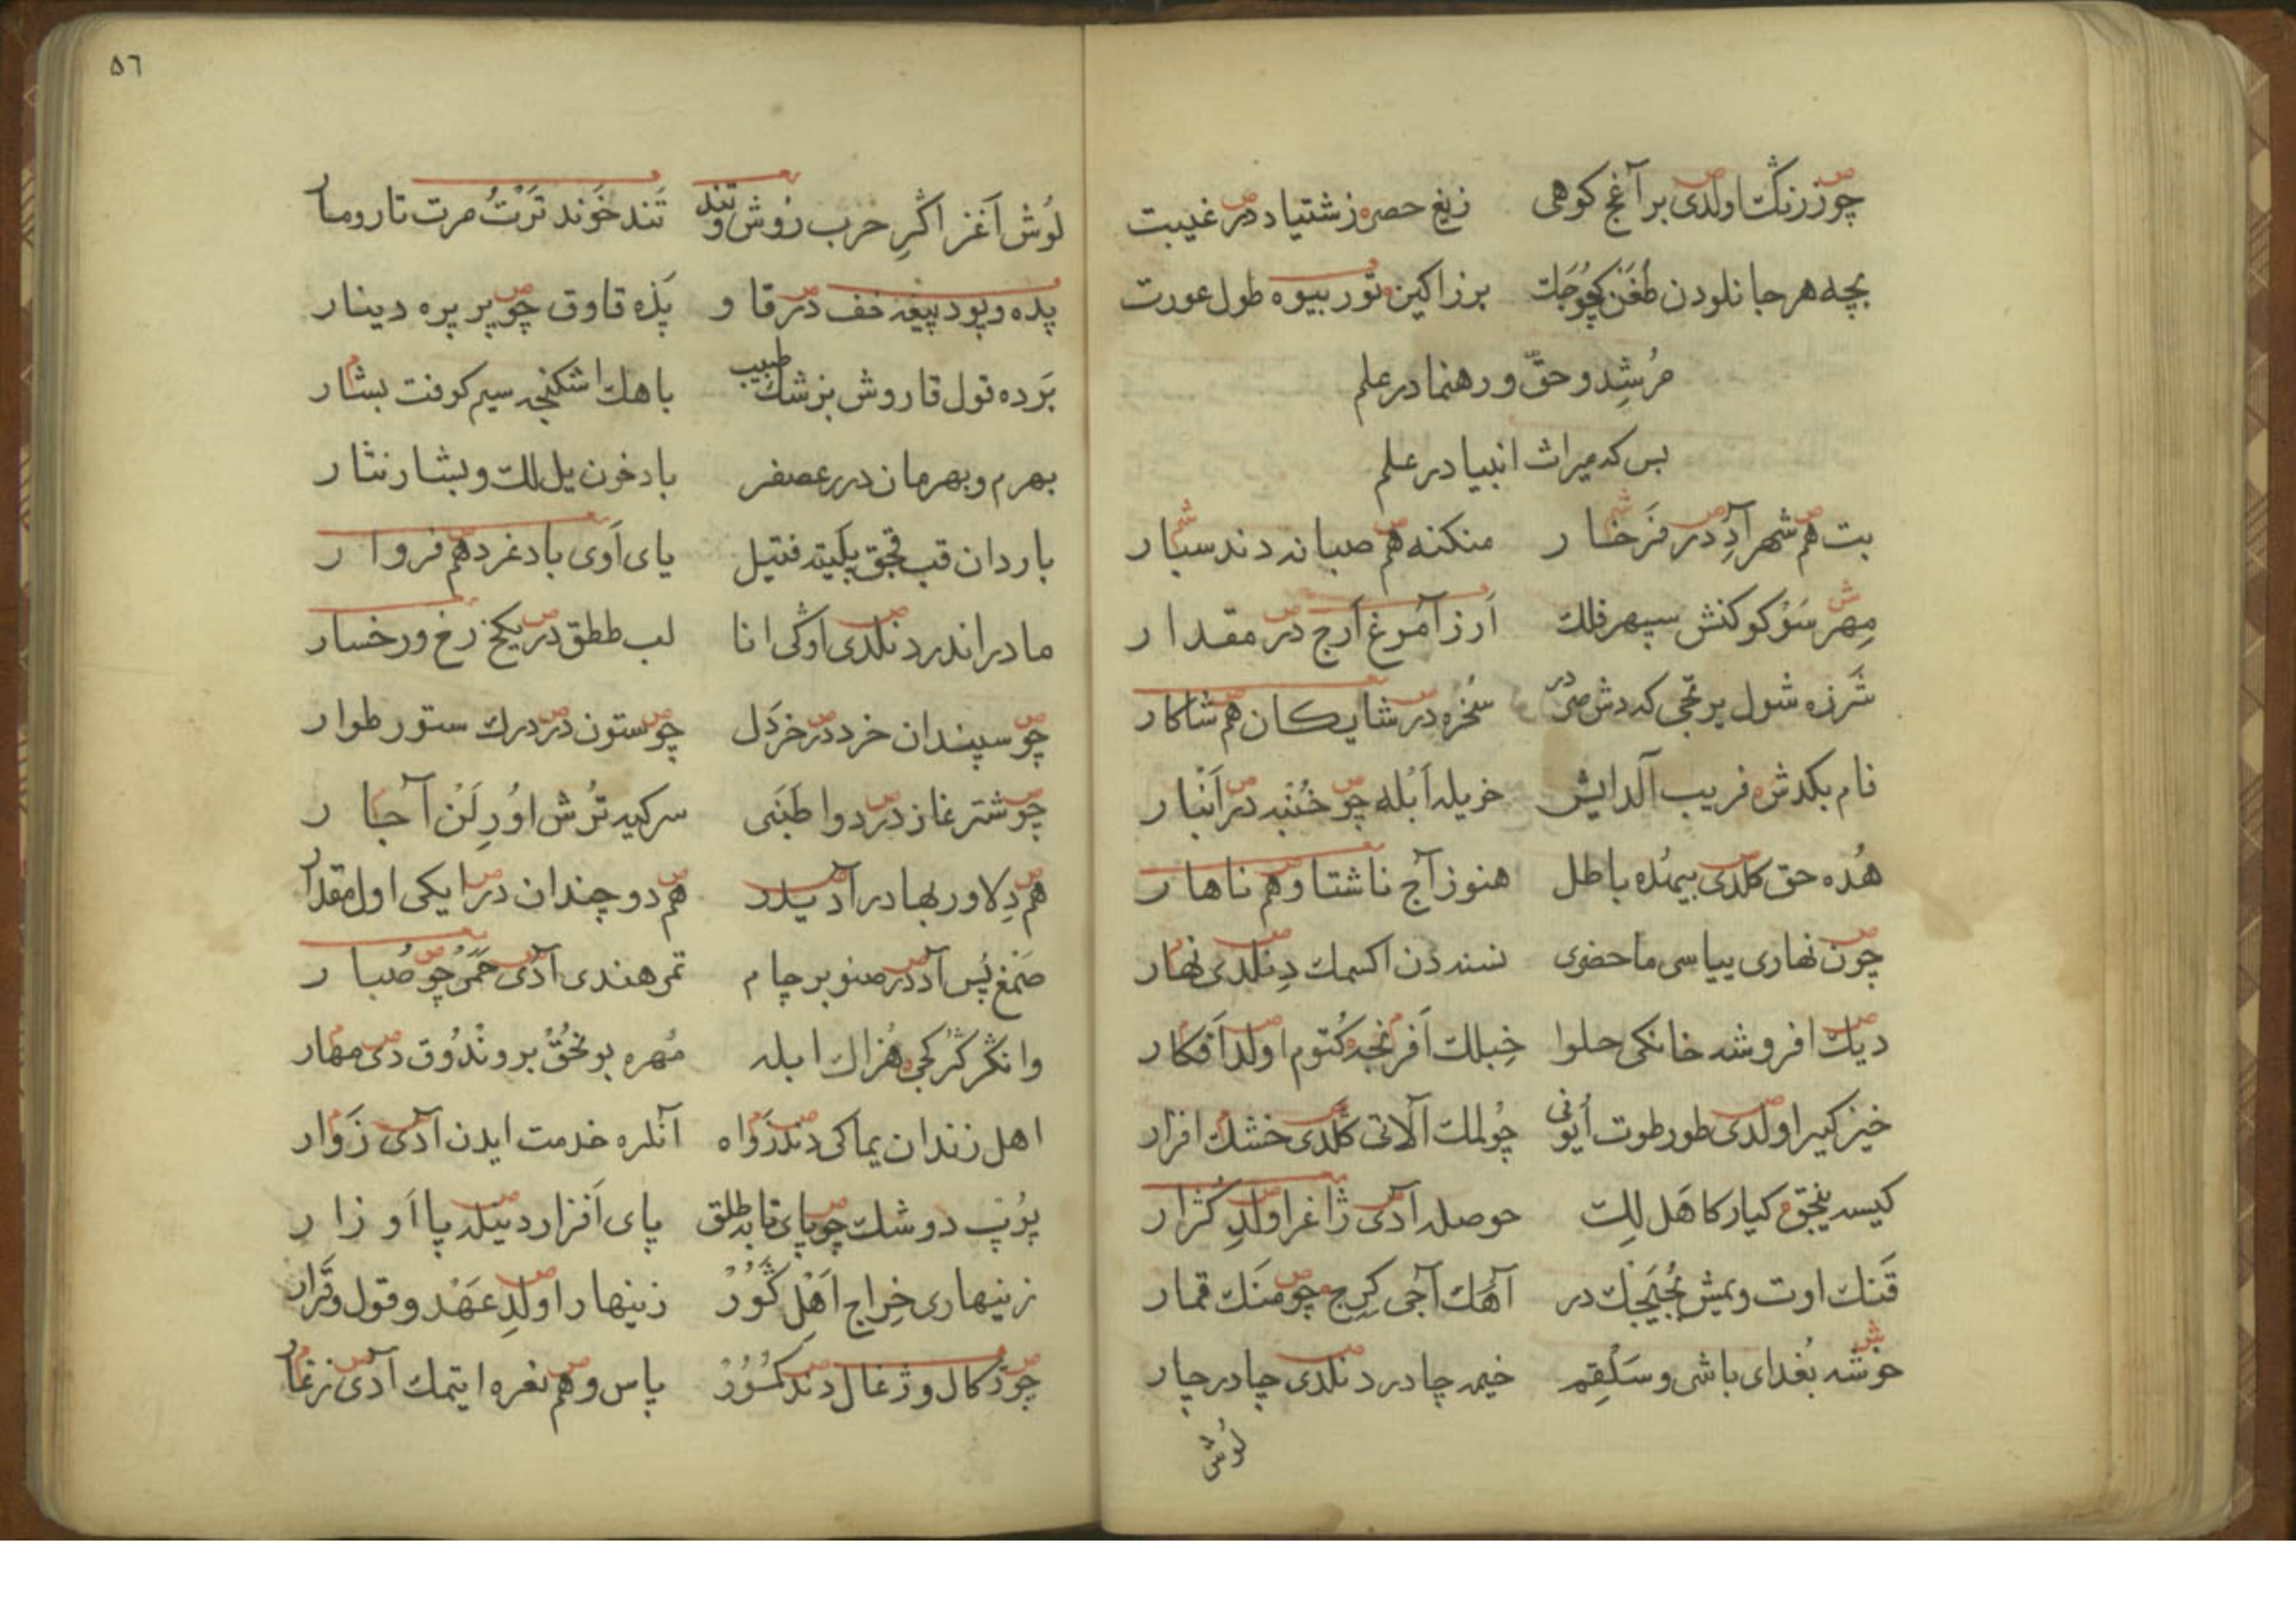 چوززنك اولدی بر آغج کوهی زیغ حصره زشتیاد در غیبت
بچه هر جانلودن طغن کچوجك برزاکین تور بیوه طول عورت
مرشد و حق و رهنما در علم
بس که میراث انبیا در علم
بت هم شهر آدِ در فَرخار منکنه هم صبانه دندسبار
مِهر سَوْکو کنش سپهر فلك اَرز آمرغ اَرج در مقدار
شَرزه شول یرتجی که دش در سُخره در شایکان هم شاکار
نام بکدش فریب آلدایش خربله اَبْله چو خُنْبه در اَنْبار
هُده حق کلدی بیهُده باطل هنوز آج ناشتا و هم ناهار
چون نهاری بیاسی ماحضری نسنه دن اکسمك دِنلدی نهار
دیك افروشه خانکی حلوا خِبلك اَفرنجه کُتوم اولد اَفکار
خیز کیر اولدی طور طوت اُیونی چُولمك آلاتی کلدی خشك افزار
کیسه ینجق کیار کاهَل لِك حوصله آدی ژاغر اولدِ کُژار
قَنك اوت و یمیش بُجنجك در آهك آجی کِرِج چو مَنَك قمار
خوشه بُغدای باشی و سَلْقِم خیمه چادر دنلدی چادر چار
لُوش
٥٦
لُوش آغز اَکْرِ خرب رُوش و تند تَند خَوند تَرْتُ مرت تار و مار
پده و پود پیغه خف در قاو پَذه قاوق چو پر پره دینار
بَرده قول قاروش بزشك طبیب باهك اشکنجه سیم کوفت بشار
بهرم و بهرمان در عصفر باد خون یل لك و بشار نثار
باردان قب قجق پلیته فتیل یای اَوی بادغرد هم فروار
مادراندر دنلدی اوکی انا لب ططق در یکخ رخ و رخسار
چو سپندان خرد در خَردَل چو ستون در درك ستور طوار
چو شتر غاز در دوا طَبَنی سرکیه تُرش اوُرِلَن آجار
هم دِلاور بهادر آدیدر هم دو چندان در ایکی اول مقدار
صَمغ پُس آد در صنوبر چام تمر هندی آدی حُمَر چو صُبار
وانکر کُژکجی هُزاك ابله مُهره بونجُق بروندُوق دی مهار
اهل زندان یماکی دندزَواه آنلره خدمت ایدن آدی زَوار
پُوپ دوشك چو پای تابه طلق پای اَفزار دینله پا اَوزار
زینهاری خراج اَهْل گَوُر زینهار اولدِ عَهْد و قول و قَرار
چو زکال و زغال دند کُمور پاس و هم نعره ایتمك آدی زغار